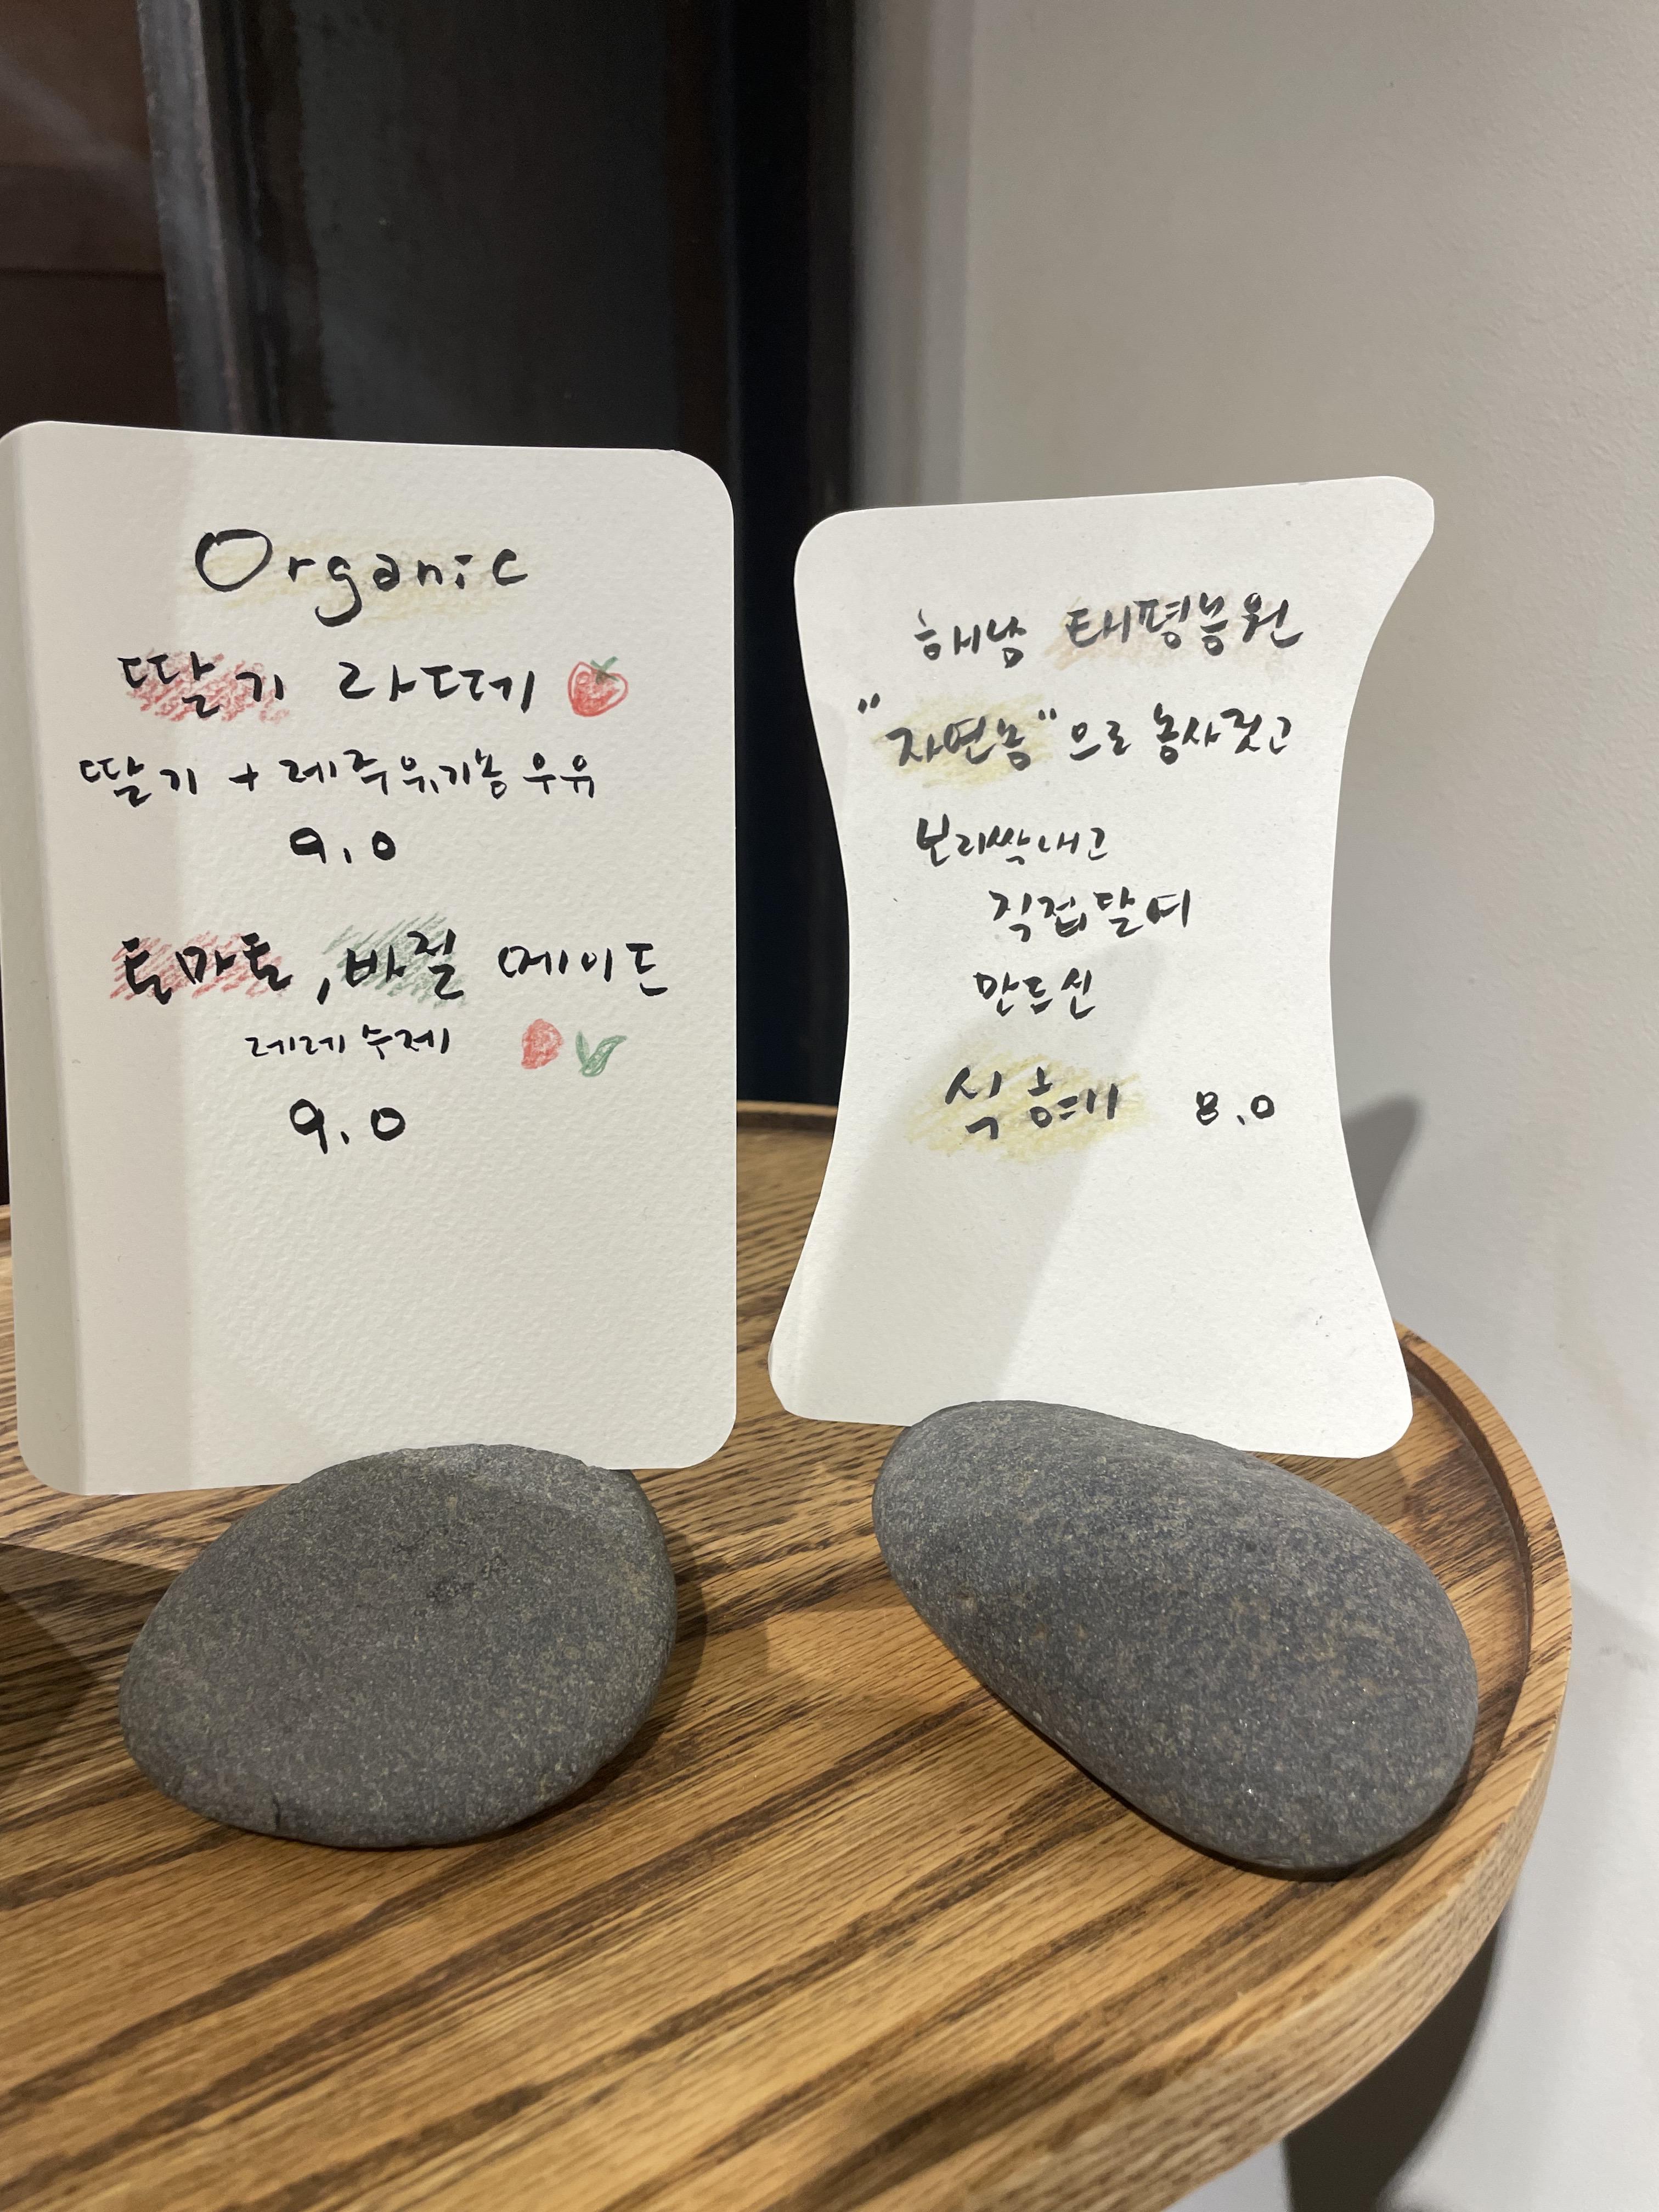 Organic
딸기 라떼
딸기 + 제주유기농 우유
9.0
토마토, 바질 에이드
레레 수제
9.0
해남 태평농원
"자연농"으로 농사짓고
보리싹내고
직접달여
만드신
식혜 8.0